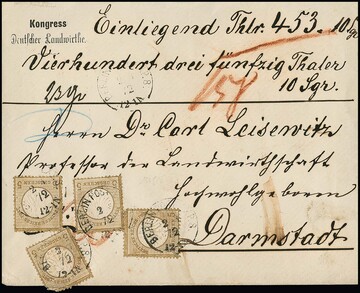 Kongress
Deutscher Landwirthe.
Einliegend Thlr. 453. 10 Sgr
Vierhundert drei fünfzig Thaler
10 Sgr.
158
Herrn Dr. Carl Leisewitz
Professor der Landwirthschaft
Hochwohlgeboren
Darmstadt